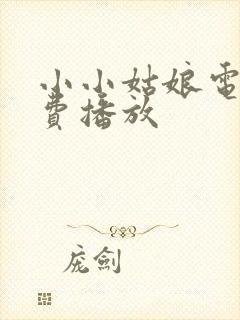 小小姑娘電
費播放
庞劍